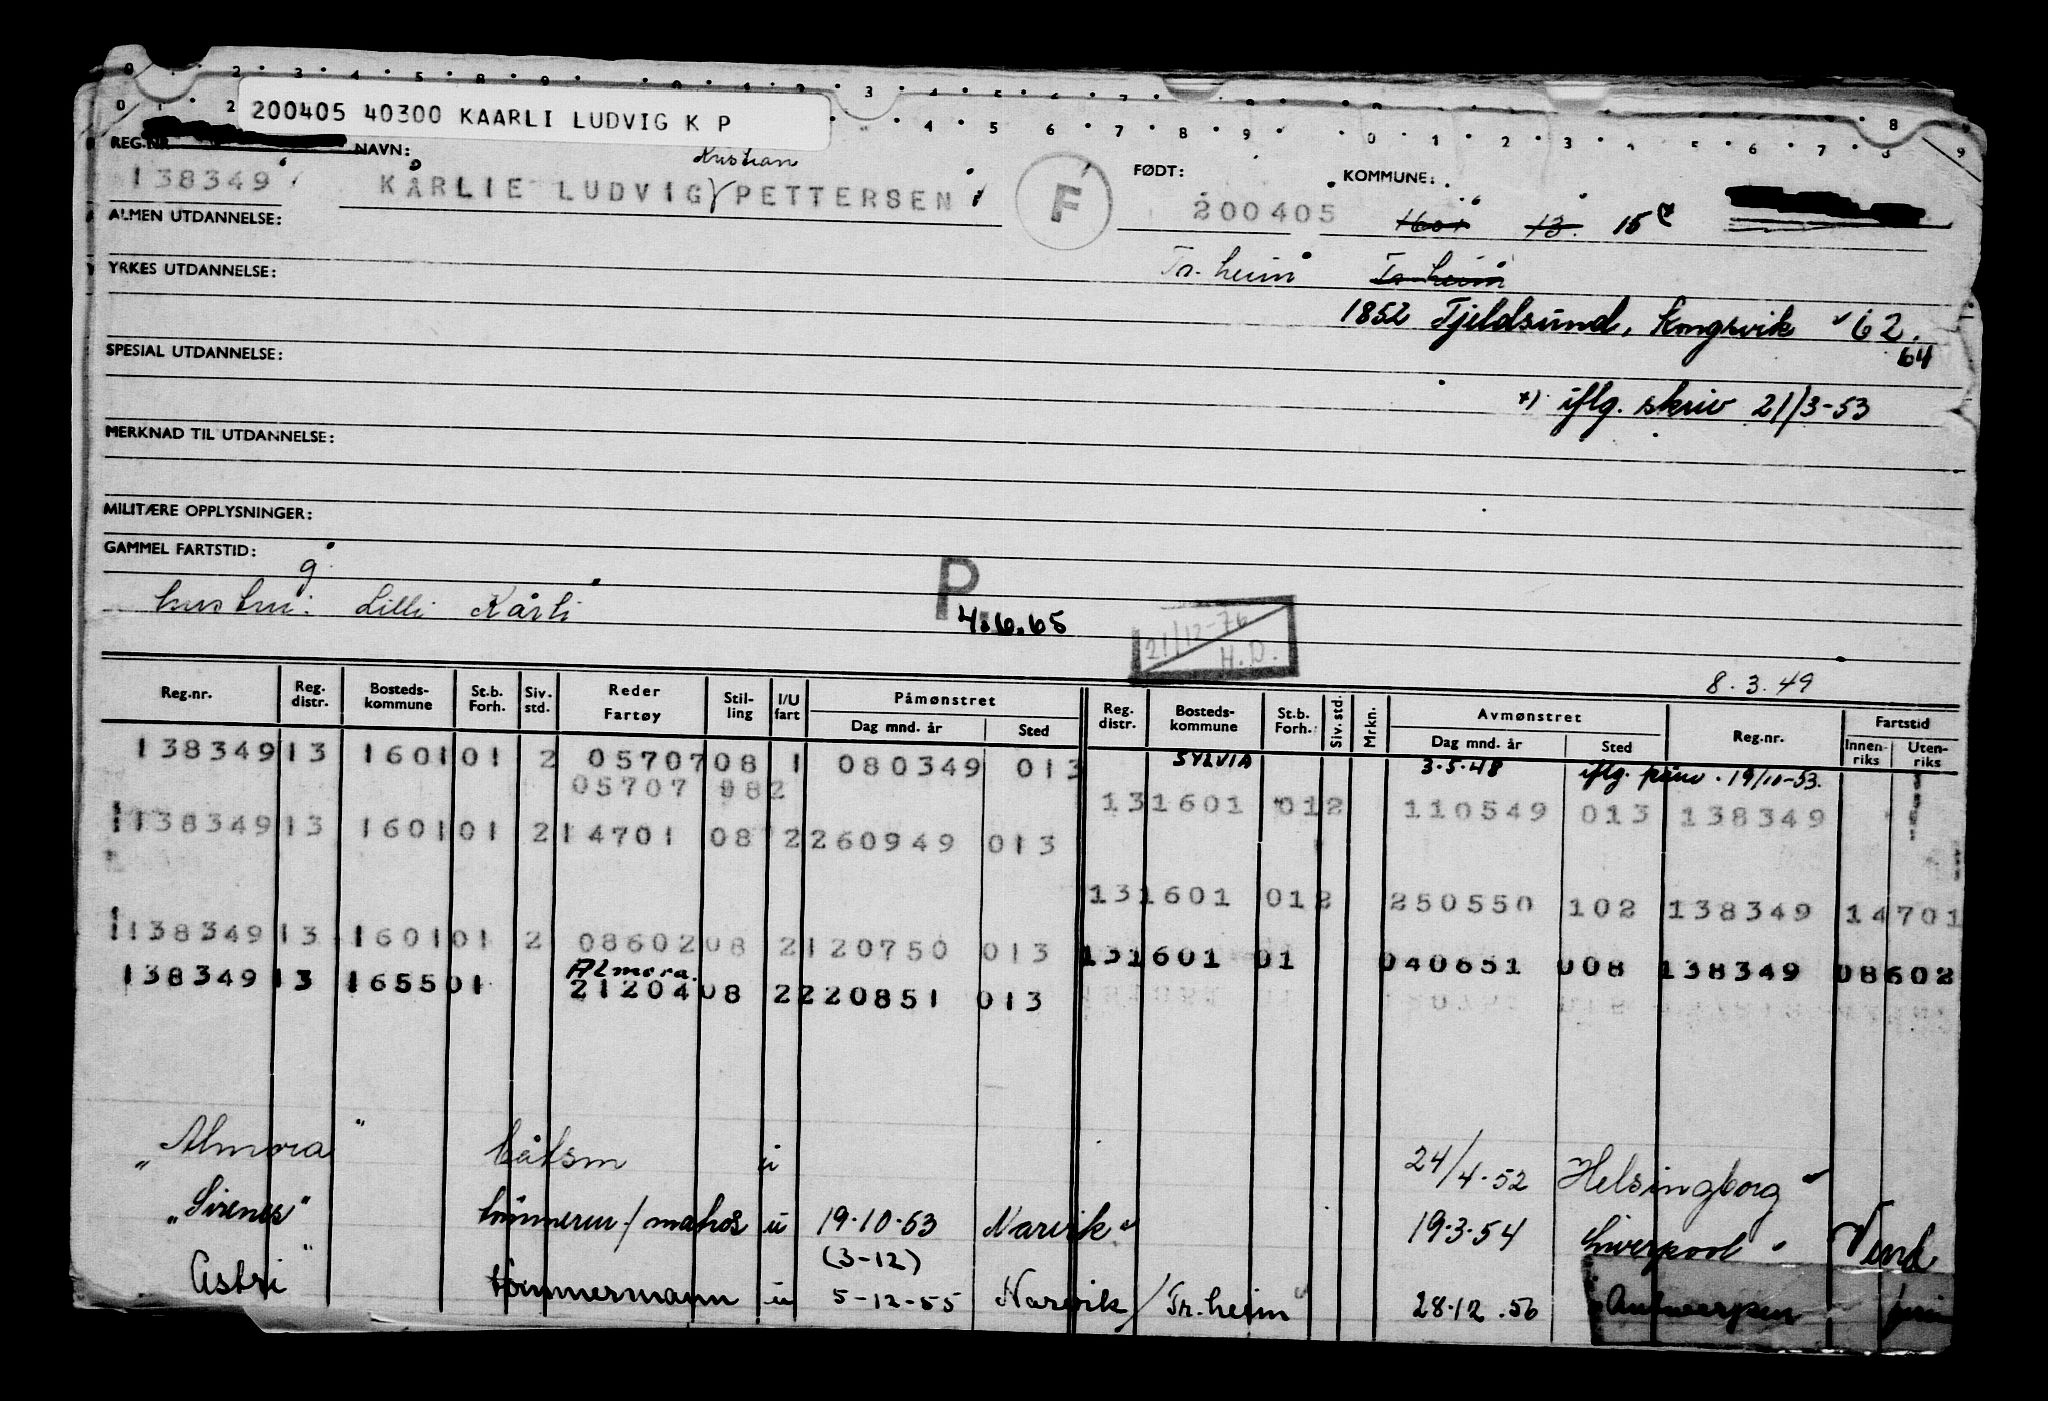 200405 40300 KAARLI LUDVIG K P
REG.NR. NAVN: FØDT: KOMMUNE:
Kristian
138349 KÅRLIE LUDVIG PETTERSEN F 200405 1601 13. 15
ALMEN UTDANNELSE:
Tr.heim Tr.heim
YRKES UTDANNELSE:
1852 Tjeldsund, Kongsvik 62.
64
SPESIAL UTDANNELSE:
x) iflg. skriv 21/3-53
MERKNAD TIL UTDANNELSE:
MILITÆRE OPPLYSNINGER:
GAMMEL FARTSTID:
g
hustru: Lilli Kårli P. 4.6.65 21/12-76 H.D.
8.3.49
Reg.nr. Reg. distr. Bosteds-kommune St.b. Forh. Siv. std. Reder Fartøy Stil-ling I/U fart Påmønstret Dag mnd. år Sted Reg. distr. Bosteds-kommune St.b. Forh. Siv. std. Mrkn. Avmønstret Dag mnd. år Sted Reg.nr. Fartstid Innen-riks Uten-riks
138349 13 1601 01 2 05707 08 1 080349 013 SYLVIA 3.5.48 iflg. prøve. 19/10-53.
05707 082 13 1601 01 2 110549 013 138349
138349 13 1601 01 2 14701 08 2 260949 013
13 1601 01 2 250550 102 138349 14701
138349 13 1601 01 2 08602 08 2 120750 013 13 1601 01 040651 008 138349 08602
Almora.
138349 13 1655 01 21204 08 2 220851 013
"Almora" båtsm u 24/4.52 Helsingborg
"Sirenes" tømmerm/matros u 19.10.53 Narvik 19.3.54 Liverpool
(3-12)
Astri" tømmermann u 5-12-55 Narvik/Tr.heim 28.12.56 Antwerpen